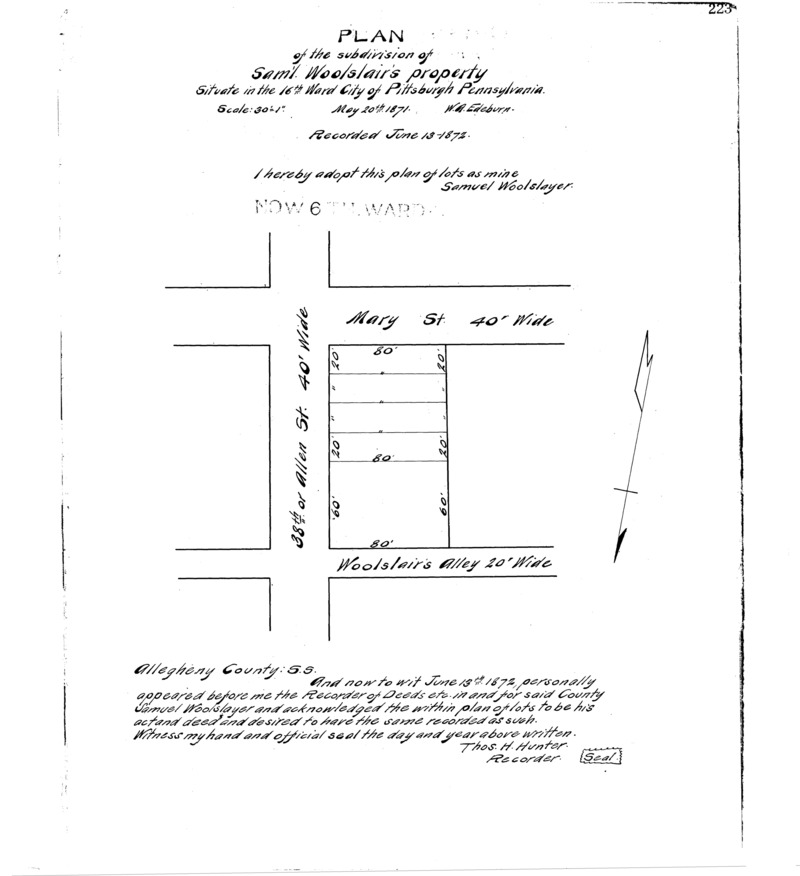 223
PLAN
of the subdivision of
Saml. Woolslair's property
Situate in the 16th Ward City of Pittsburgh Pennsylvania.
Scale: 30'=1". May 20th 1871. W.A. Edeburn.
Recorded June 13-1872.
I hereby adopt this plan of lots as mine
Samuel Woolslayer.
NOW 6TH. WARD.
Mary St. 40' Wide
38th or Allen St. 40' Wide
20' 80' 20'
" " "
" " "
"
20' 20'
80'
60' 60'
80'
Woolslair's Alley 20' Wide
Allegheny County: S.S.
And now to wit June 13th 1872, personally
appeared before me the Recorder of Deeds etc. in and for said County
Samuel Woolslayer and acknowledged the within plan of lots to be his
act and deed and desired to have the same recorded as such.
Witness my hand and official seal the day and year above written.
Thos. H. Hunter.
Recorder. Seal